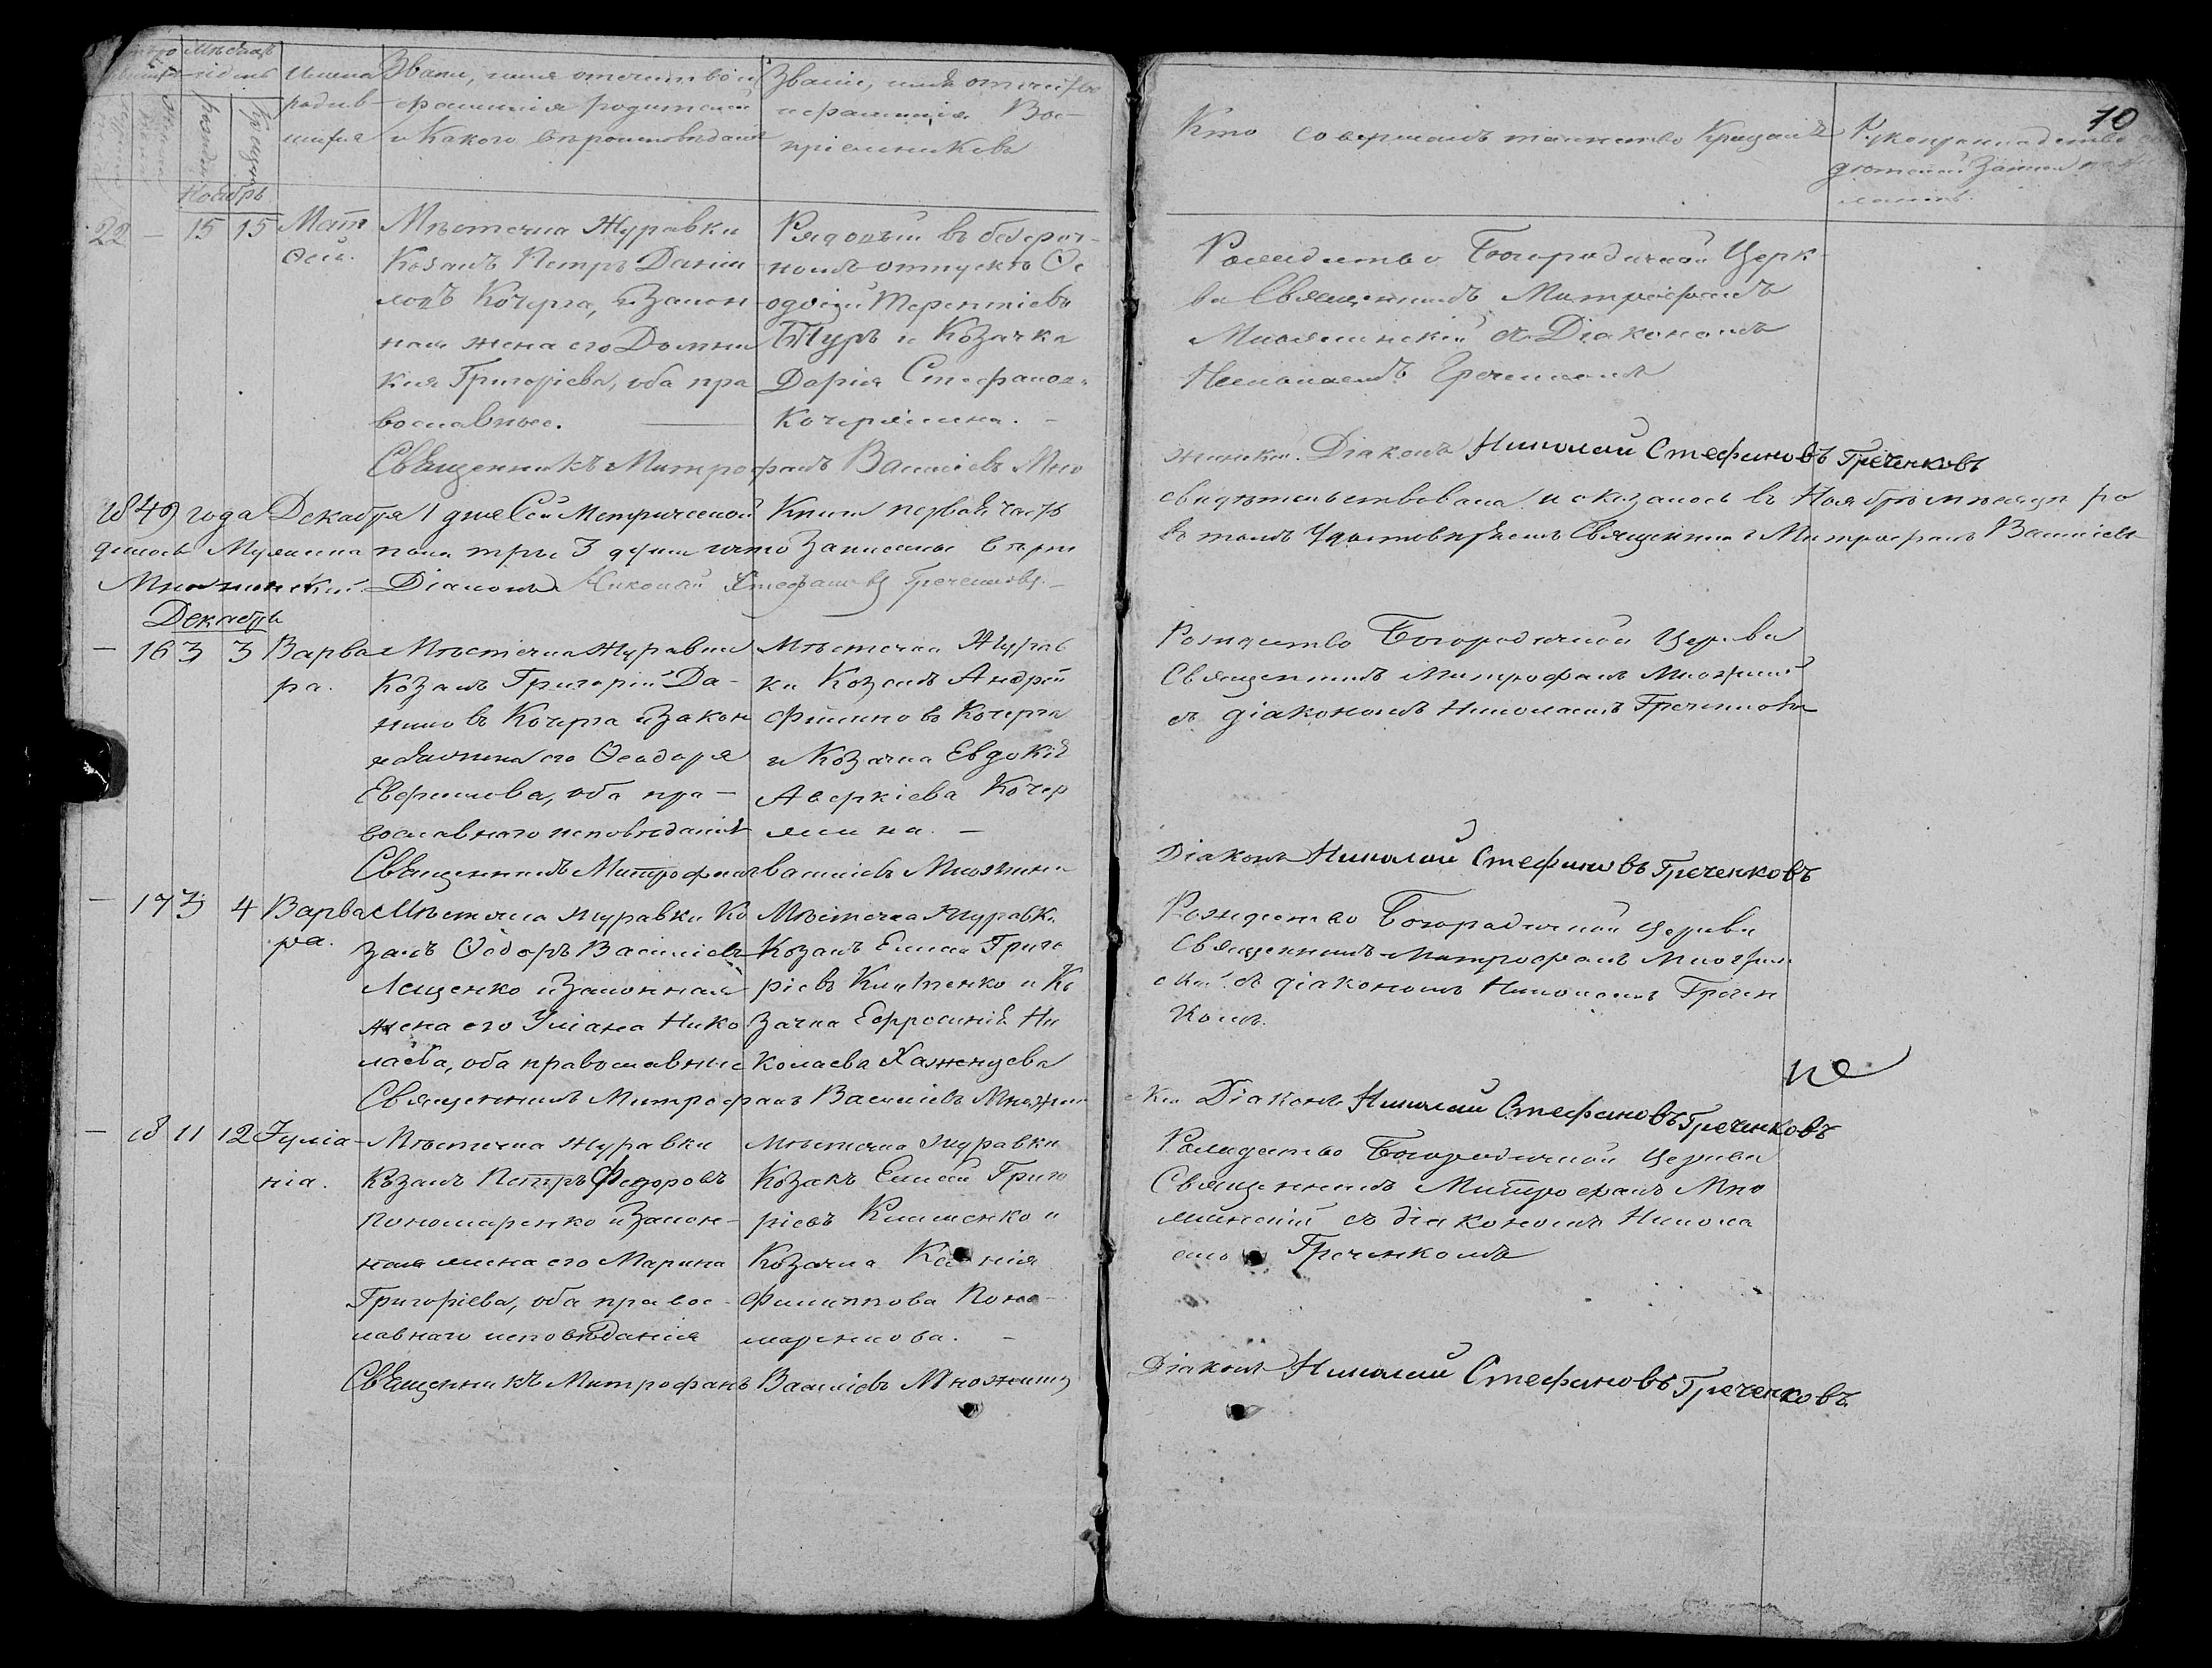 Мѣсяцъ
и день
рожден
Крещен
Имена
родив-
шихся
Званіе, имя отчество и
фамилія родителей
и Какого вѣроисповѣданія
Званіе, имя отчество
и фамилія Вос-
пріемниковъ
Ноябрь
22 — 15 15 Мат
ѳей.
Мѣстечка Журавки
Козакъ Петръ Данiи
ловъ Кочерга, и Закон
ная жена его Домни
кия Григорiева, оба пра
вославные.
Рядовый въ безсроч-
номъ отпускѣ Ѳе
одосiй Терентiевъ
Туръ и Козачка
Дарiя Стефанова
Кочержина. —
Священникъ Митрофанъ Василіевъ Мно
1849 года Декабря 1 дня Сей Метрической Книги первая часть
дилось Мужеска пола три 3 души что Записаны вѣрно
Множинскій. Діаконъ Николай Стефановъ Греченковъ. —
Декабрь
— 16 3 3 Варва
ра.
Мѣстечка Журавки
Козакъ Григорій Да-
ниловъ Кочерга и Закон
ная жена его Ѳеодора
Ефимова, оба пра—
вославнаго исповѣданія
Мѣстечка Журав
ки Козакъ Андрей
Филиповъ Кочерга
и Козачка Евдокія
Аверкіева Кочер
жина. —
Священникъ Митрофанъ Василіевъ Множинс
— 17 3 4 Варва
ра.
Мѣстечка Журавки Ко
закъ Ѳедоръ Василіевъ
Лещенко и Законная
жена его Уліана Нико
лаева, оба православные
Мѣстечка Журавки
Козакъ Елисей Григо
ріевъ Клименко и Ко
зачка Ефросинія Ни
колаева Хаженцева
Священникъ Митрофанъ Василіевъ Множин
— 18 11 12 Іуліа-
нія.
Мѣстечка Журавки
Козакъ Петръ Федоровъ
Пономаренко и Закон-
ная жена его Марина
Григоріева, оба правос-
лавнаго исповѣданія
Мѣстечка Журавки
Козакъ Елисей Григо
ріевъ Клименко и
Козачка Ксенія
Филиппова Поно—
маренкова. —
Священникъ Митрофанъ Василіевъ Множинс
70
Кто совершалъ таинство Крещенія
Рождество Богородичной Церк
ви Священникъ Митрофанъ
Множинскій съ Діакономъ
Николаемъ Греченкомъ
жинскій. Діаконъ Николай Стефановъ Греченковъ
свидѣтельствована и оказалось въ Ноябрѣ мѣсяцѣ ро
въ томъ Удостовѣряемъ Священникъ Митрофанъ Василіевъ
Рождество Богородичной Церкви
Священникъ Митрофанъ Множинскій
съ діакономъ Николаемъ Греченковъ
Діаконъ Николай Стефановъ Греченковъ
Рождество Богородичной Церкви
Священникъ Митрофанъ Множин
скій съ діакономъ Николаемъ Гречен
комъ.
скій Діаконъ Николай Стефановъ Греченковъ
Рождество Богородичной Церкви
Священникъ Митрофанъ Мно
жинскій съ діакономъ Никола
емъ Греченкомъ
Діаконъ Николай Стефановъ Греченковъ